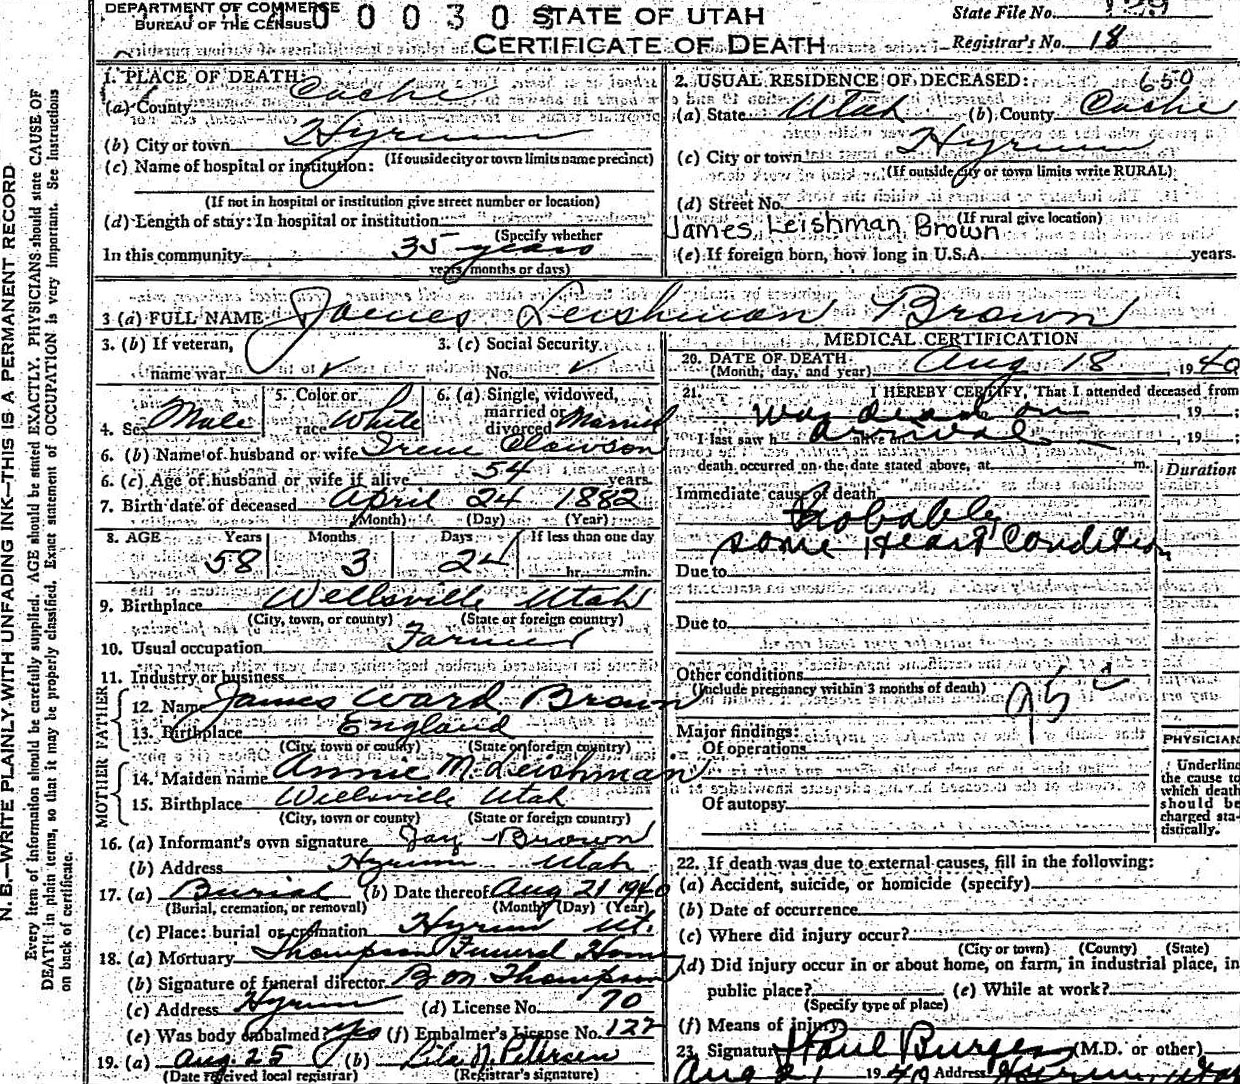 DEPARTMENT OF COMMERCE
BUREAU OF THE CENSUS
0 0 0 3 0
STATE OF UTAH
CERTIFICATE OF DEATH
State File No. 129
Registrar's No. 18
N. B.—WRITE PLAINLY WITH UNFADING INK—THIS IS A PERMANENT RECORD
Every item of information should be carefully supplied. AGE should be stated EXACTLY. PHYSICIANS should state CAUSE OF
DEATH in plain terms, so that it may be properly classified. Exact statement of OCCUPATION is very important. See instructions
on back of certificate.
1. PLACE OF DEATH:
(a) County Cache
(b) City or town Hyrum
(If outside city or town limits name precinct)
(c) Name of hospital or institution:
(If not in hospital or institution give street number or location)
(d) Length of stay: In hospital or institution
(Specify whether
In this community 35 years
years, months or days)
2. USUAL RESIDENCE OF DECEASED:
650
(a) State Utah (b) County Cache
(c) City or town Hyrum
(If outside city or town limits write RURAL)
(d) Street No.
(If rural give location)
James Leishman Brown
(e) If foreign born, how long in U.S.A. years.
3 (a) FULL NAME James Leishman Brown
3. (b) If veteran,
name war
3. (c) Social Security
No.
4. Sex Male
5. Color or
race White
6. (a) Single, widowed,
married or
divorced Married
6. (b) Name of husband or wife Irene Clawson
6. (c) Age of husband or wife if alive 54 years
7. Birth date of deceased April 24 1882
(Month) (Day) (Year)
8. AGE Years Months Days If less than one day
58 3 24 hr. min.
9. Birthplace Wellsville Utah
(City, town, or county) (State or foreign country)
10. Usual occupation Farmer
11. Industry or business
FATHER
12. Name James Ward Brown
13. Birthplace England
(City, town or county) (State or foreign country)
MOTHER
14. Maiden name Annie M. Leishman
15. Birthplace Wellsville Utah
(City, town or county) (State or foreign country)
16. (a) Informant's own signature Jay Brown
(b) Address Hyrum Utah
17. (a) Burial (b) Date thereof Aug 21 1940
(Burial, cremation, or removal) (Month) (Day) (Year)
(c) Place: burial or cremation Hyrum Ut.
18. (a) Mortuary Thompson Funeral Home
(b) Signature of funeral director B M Thompson
(c) Address Hyrum (d) License No. 70
(e) Was body embalmed? Yes (f) Embalmer's License No. 122
19. (a) Aug. 25 (b) Lila N. Petersen
(Date received local registrar) (Registrar's signature)
MEDICAL CERTIFICATION
20. DATE OF DEATH Aug 18, 1940
(Month, day, and year)
21. I HEREBY CERTIFY, That I attended deceased from
was dead on, 19 ;
I last saw h alive on arrival, 19 ;
death occurred on the date stated above, at m.
Duration
Immediate cause of death
Probably
some Heart Condition
Due to
Due to
Other conditions
(Include pregnancy within 3 months of death)
95c
Major findings:
Of operations
Of autopsy
PHYSICIAN
Underline
the cause to
which death
should be
charged sta-
tistically.
22. If death was due to external causes, fill in the following:
(a) Accident, suicide, or homicide (specify)
(b) Date of occurrence
(c) Where did injury occur?
(City or town) (County) (State)
(d) Did injury occur in or about home, on farm, in industrial place, in
public place? (e) While at work?
(Specify type of place)
(f) Means of injury
23. Signature Paul Burgess (M.D. or other)
Aug 21 1940 Address Hyrum Utah